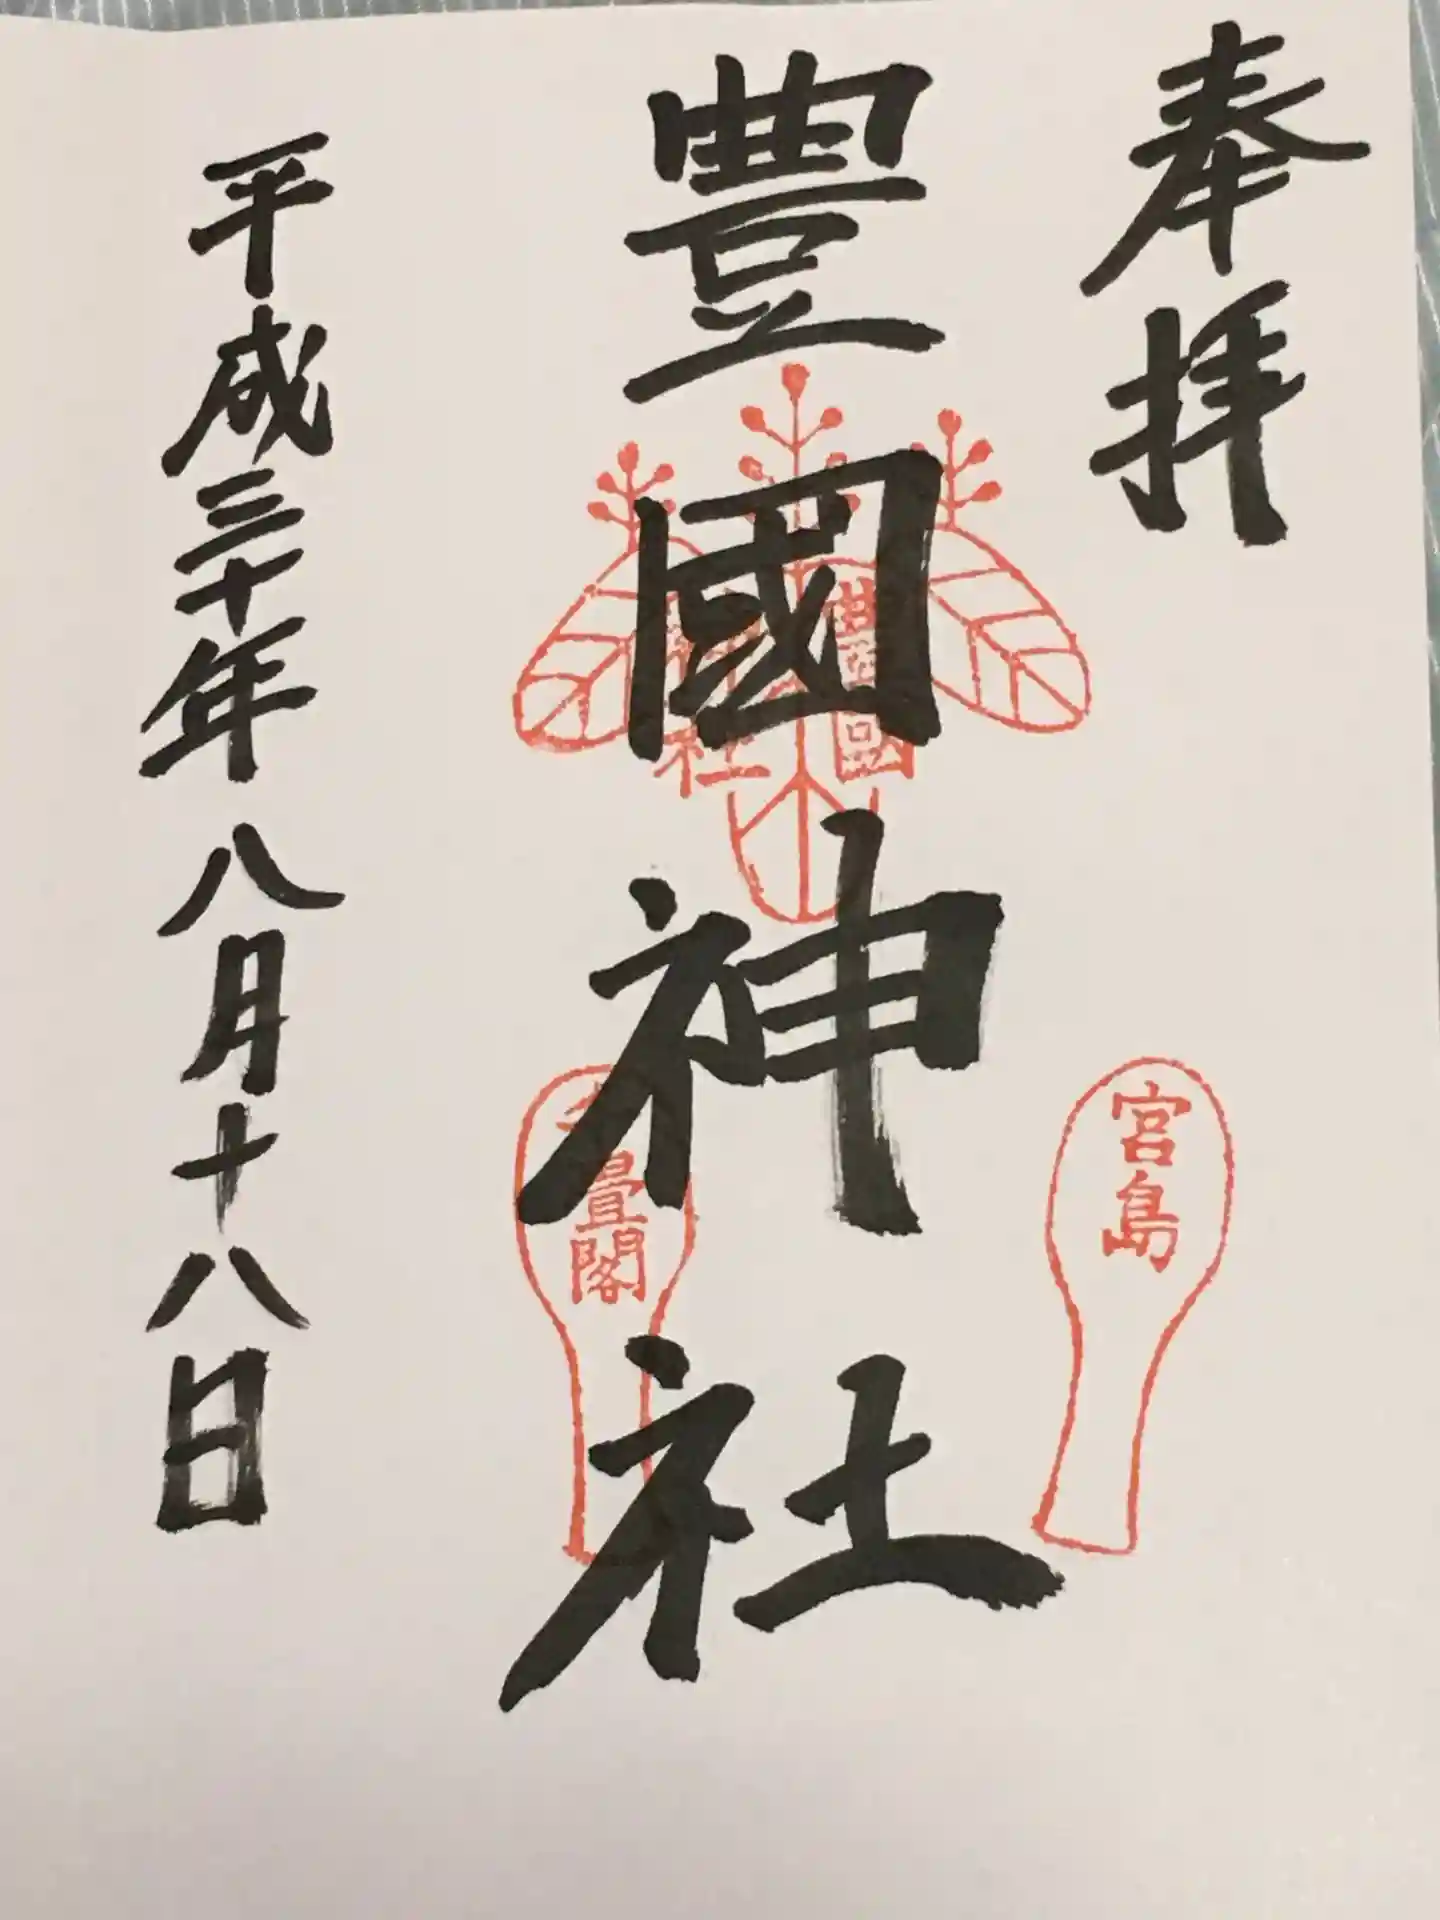 奉拝
豊國神社
豊國
神社
宮島
畳閣
平成三十年八月十八日